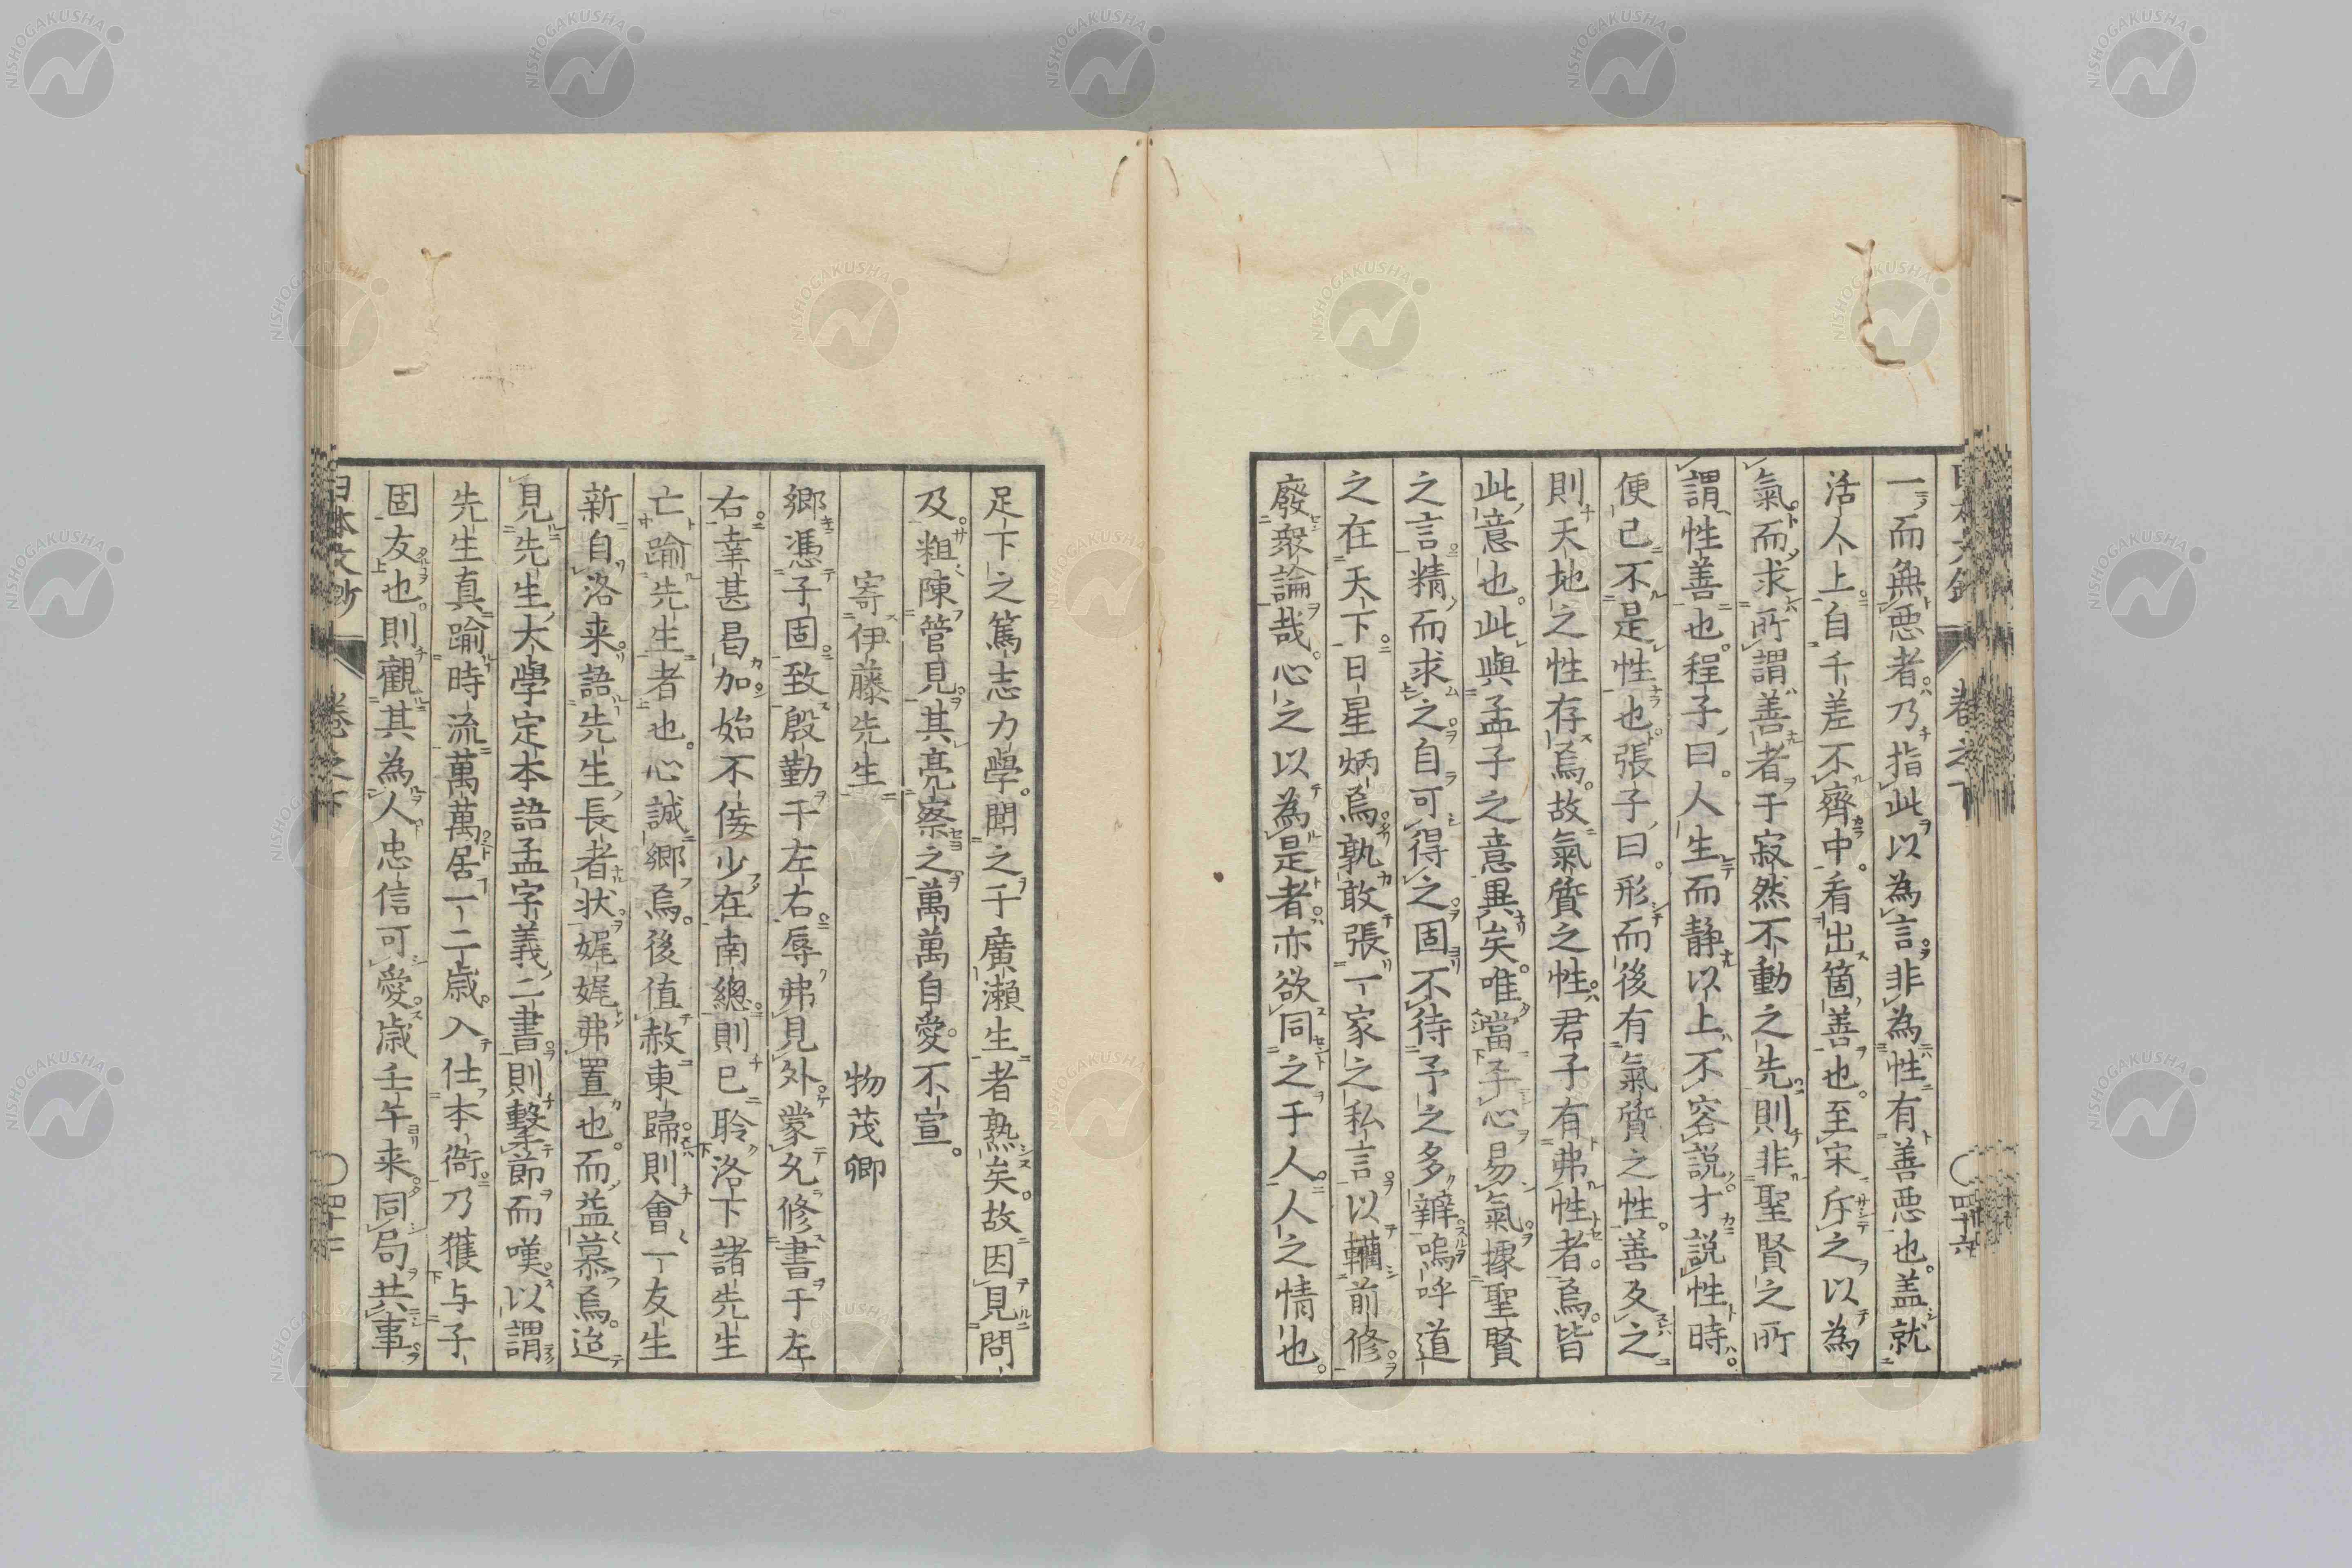 一而無悪者乃指此以為言非為性有善悪也盖就
活人上自千差不齊中看出箇善也至宋斥之以為
氣而求所謂善者于寂然不動之先則非聖賢之所
謂性善也程子曰人生而静以上不容説才説性時
便已不是性也張子曰形而後有氣質之性善反之
則天地之性存焉故氣質之性君子有弗性者焉皆
此意也此與孟子之意異矣唯當子心易氣據聖賢
之言精而求之自可得之固不待予之多辯嗚呼道
之在天下日星炳焉孰敢張一家之私言以轥前修
廢衆論哉心之以為是者亦欲同之于人人之情也
卷之下
四十六
足下之篤志力學聞之于廣瀬生者熟矣故因見問
及粗陳管見其亮察之萬萬自愛不宣
寄伊藤先生 物茂卿
鄉憑子固致殷勤于左右辱弗見外蒙允修書于左
右幸甚曷加始不佞少在南總則已聆洛下諸先生
亡踰先生者也心誠鄉焉後值赦東歸則會一友生
新自洛来語先生長者状娓娓弗置也而益慕焉迨
見先生大學定本語孟字義二書則擊節而嘆以謂
先生真踰時流萬萬居一二歳入仕本衙乃獲与子
固友也則觀其為人忠信可愛歳壬午来同局共事
日本文鈔
卷之下
NISHOGAKUSHA